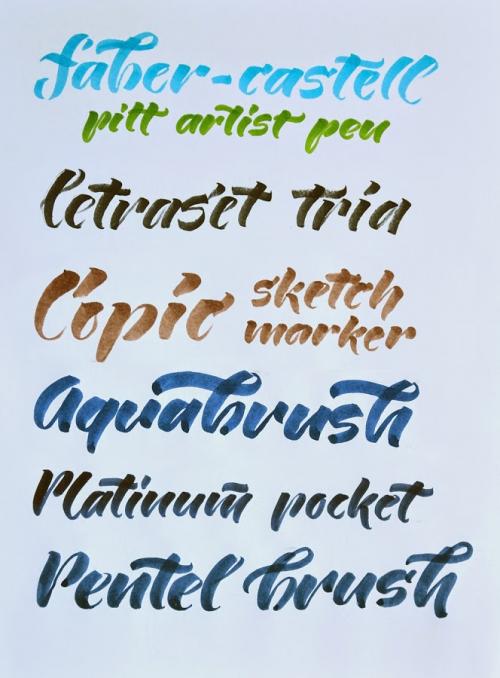 faber-castell
pitt artist pen
letraset tria
Copic sketch
marker
Aquabrush
Platinum pocket
Pentel brush